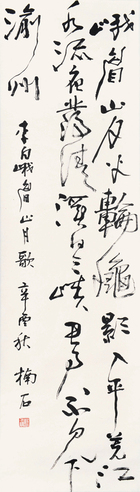 峨眉山月半輪龝影入平羌江
水流夜發清溪向三峽思君不見下
渝州
李白峨眉山月歌 辛酉秋 楠石